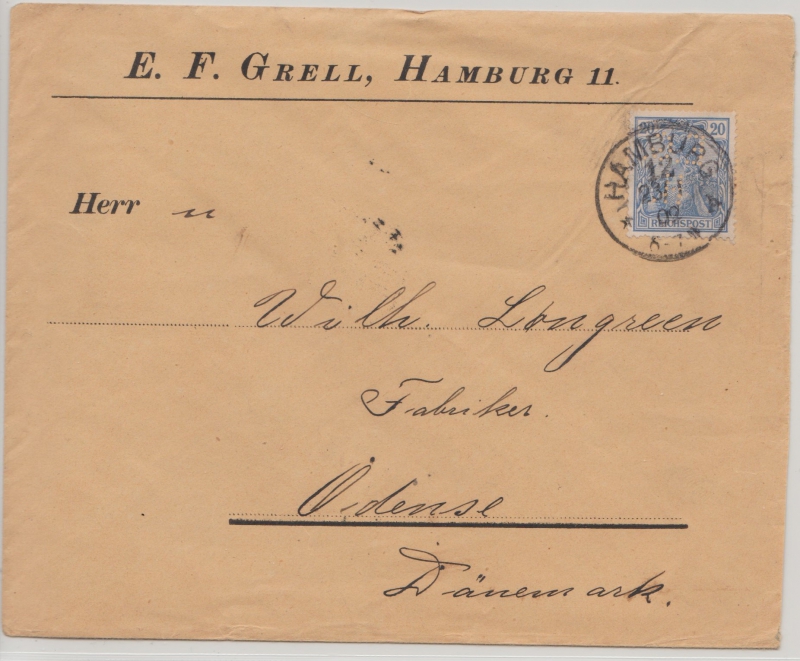 E. F. Grell, Hamburg 11.
20
HAMBURG
12
02
REICHSPOST
Herr n
Wilh. Longreen
Fabriker.
Odense
Dänemark.